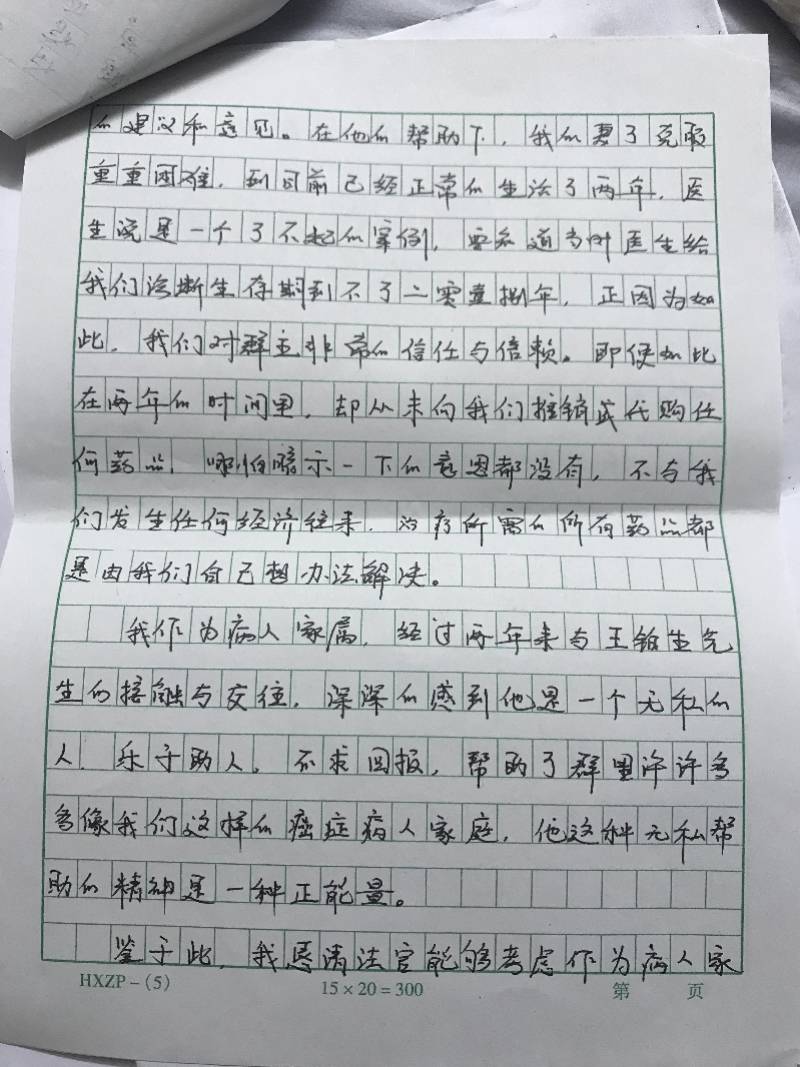 的建议和意见。在他的帮助下，我的妻子克服
重重困难，到目前已经正常的生活了两年，医
生说是一个了不起的案例，要知道当时医生给
我们诊断生存期到不了二零壹捌年，正因为如
此，我们对群主非常的信任与信赖。即使如此
在两年的时间里，却从未向我们推销或代购任
何药品，哪怕暗示一下的意思都没有，不与我
们发生任何经济往来，治疗所需的所有药品都
是由我们自己想办法解决。
我作为病人家属，经过两年来与王铂生先
生的接触与交往，深深的感到他是一个无私的
人，乐于助人，不求回报，帮助了群里许许多
多像我们这样的癌症病人家庭，他这种无私帮
助的精神是一种正能量。
鉴于此，我恳请法官能够考虑作为病人家
HXZP-(5) 15×20=300 第 页